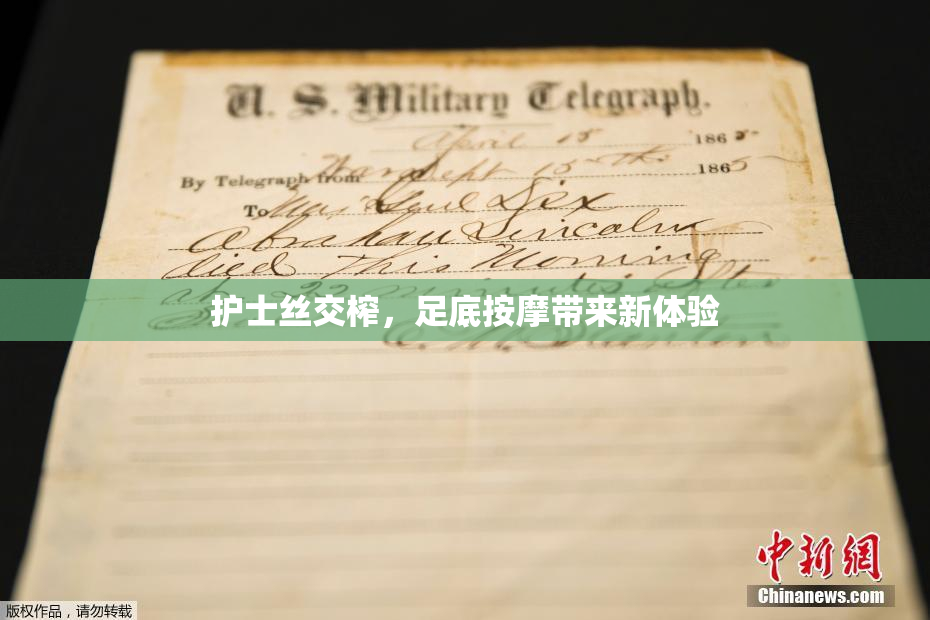 U. S. Military Telegraph.
April 15 1865
By Telegraph from War Dept 15th 1865
To Maj Genl Dix
Abraham Lincoln
died this Morning
at 22 minutes after
护士丝交榨，足底按摩带来新体验
中新网
Chinanews.com
版权作品，请勿转载